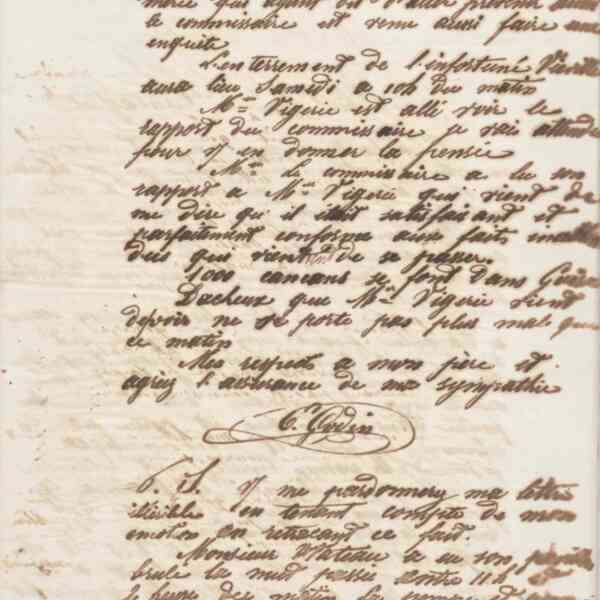 mercé qui ayant dit d'aller prévenir aussi
le commissaire est venu aussi faire une
enquête
L'enterrement de l'infortuné
aura lieu Samedi a 10h du matin
Mr Vigerie est allé voir le
rapport du commissaire je vais attendre
pour y en donner la pensée
Mr le commissaire a lu son
rapport a Mr Vigerie qui vient de
me dire qu il était satisfaisant et
parfaitement conforme aux faits
qui viennent de se passer.
1,000 cancans se font dans Guise
Dacheux que Mr Vigerie vient
de voir ne se porte pas plus mal que
ce matin
Mes respects a mon père et
agréez l'assurance de ma sympathie
Godin
P. S. me pardonnerez ma lettre
illisible en tenant compte de mon
émotion en retraçant ce fait.
Monsieur Plateau a eu son
brulé la nuit passée entre 11h, et